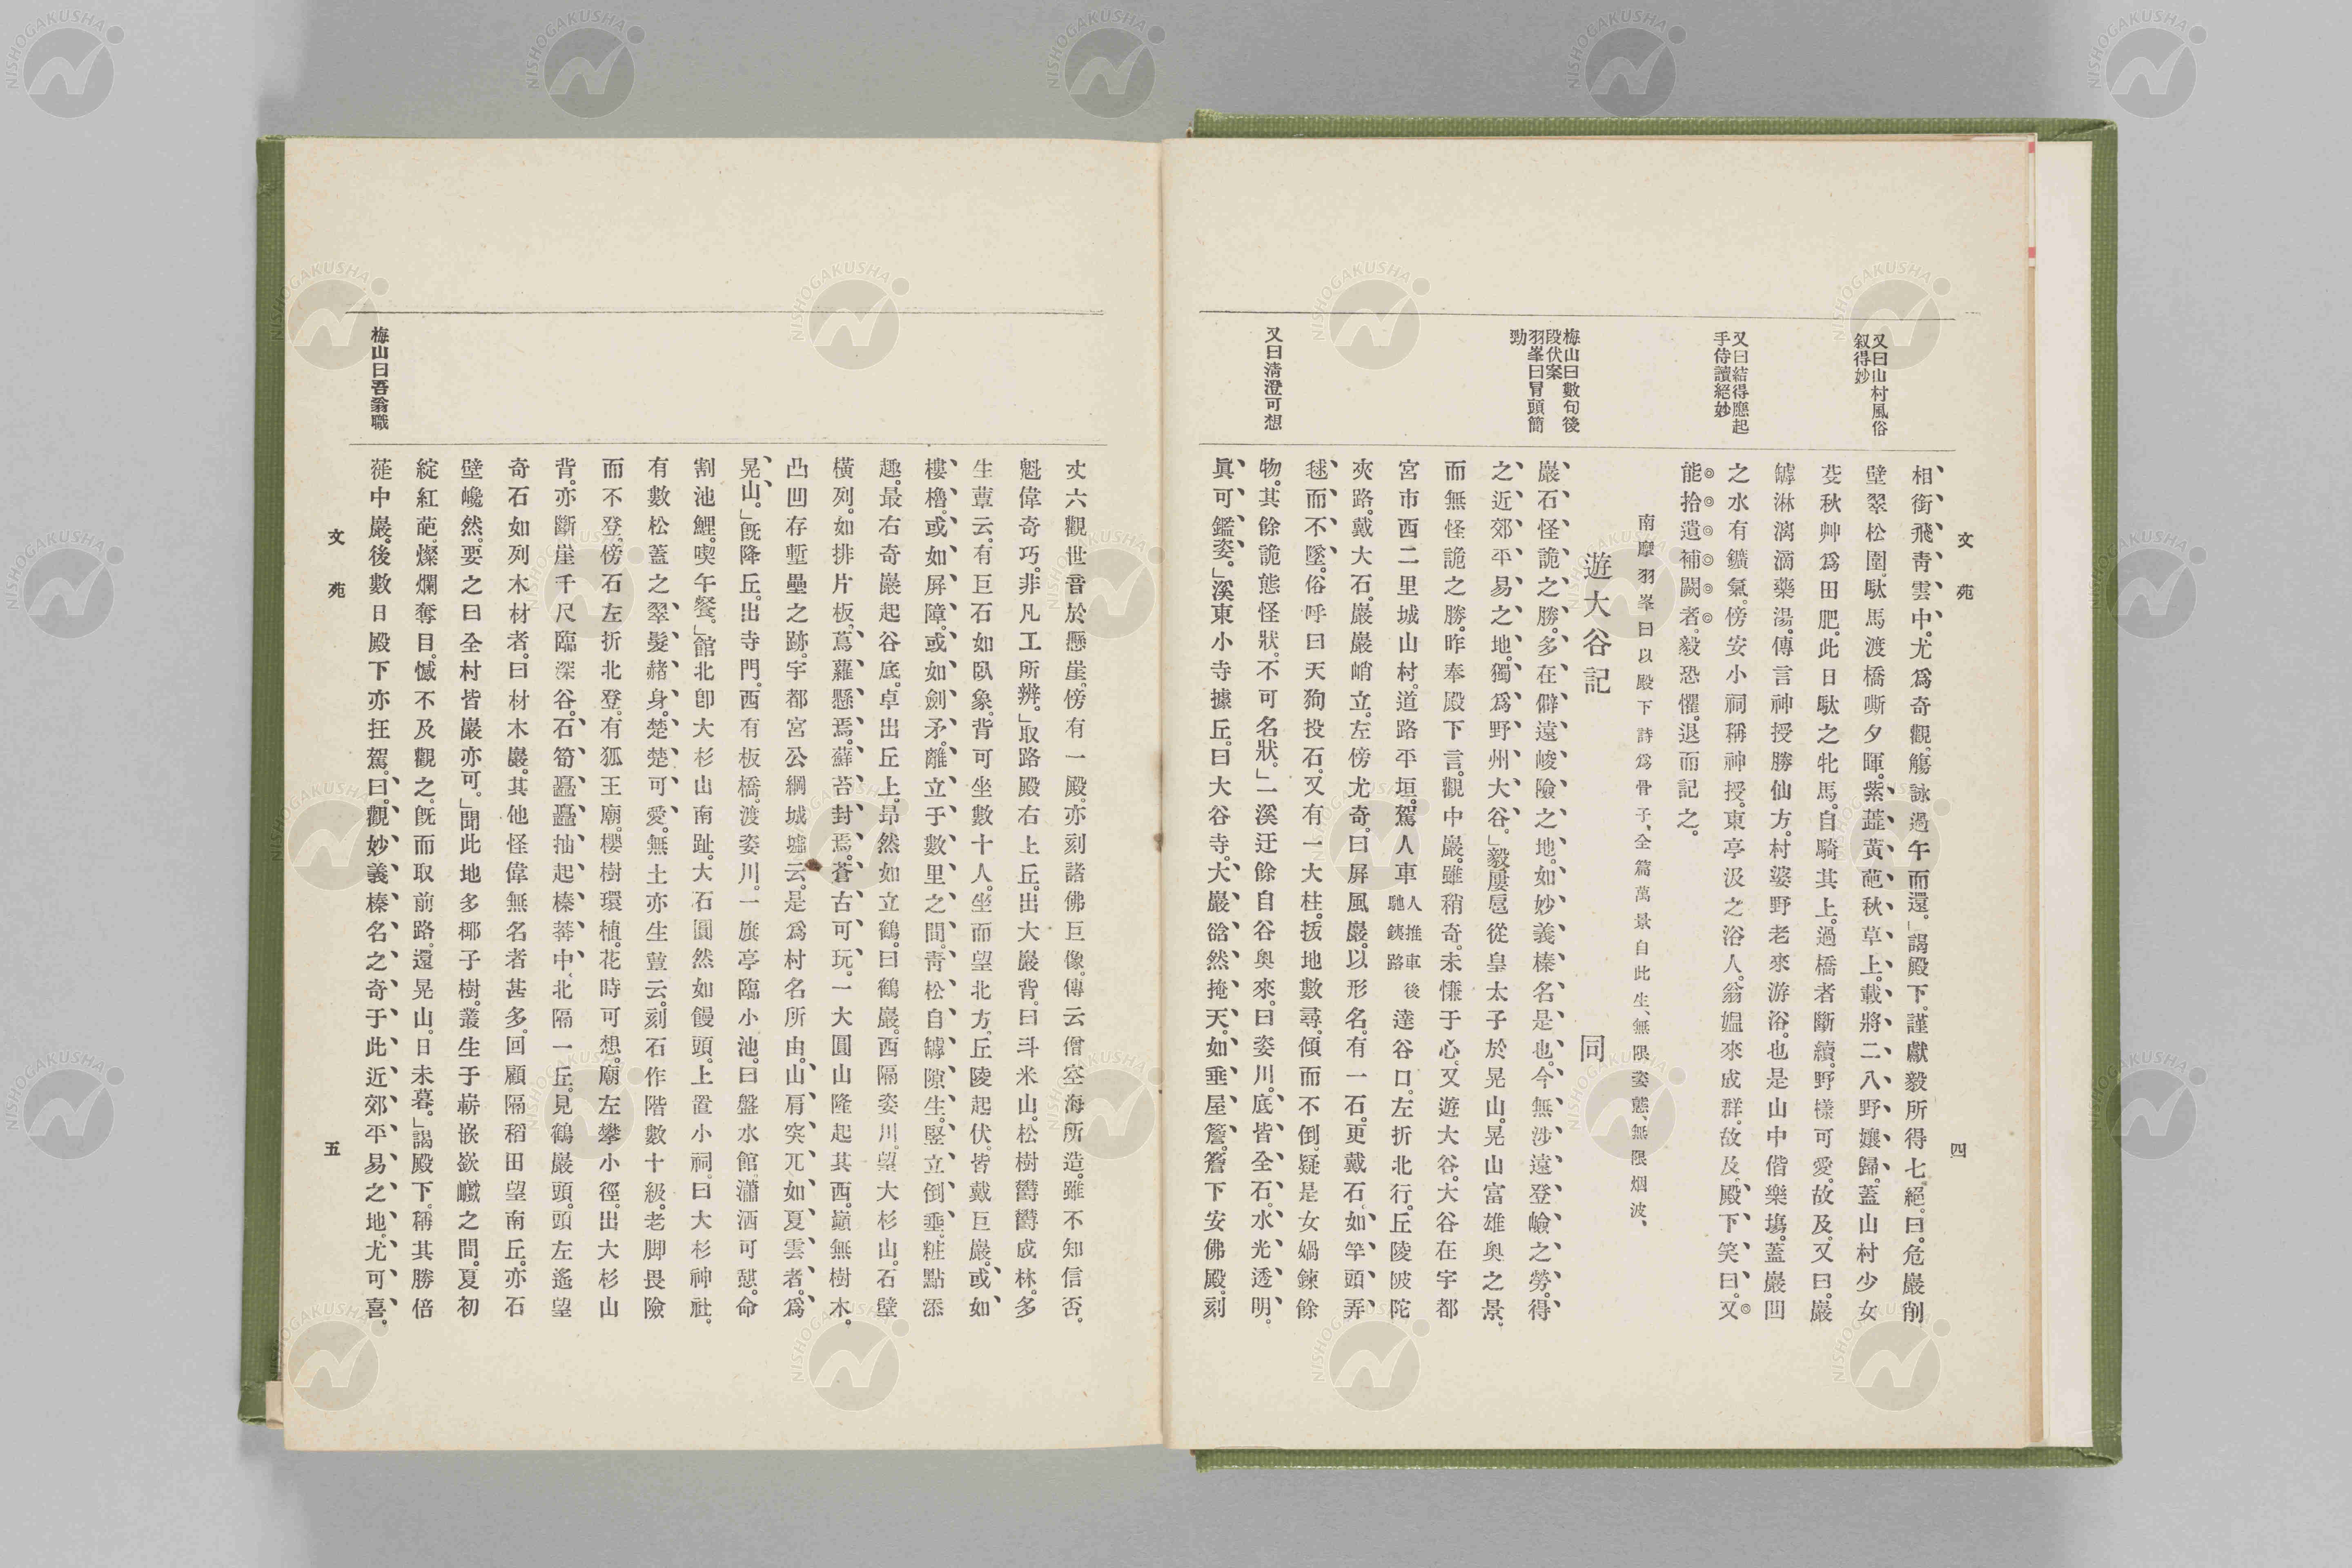 文苑
四
又曰山村風俗
叙得妙
又曰結得應起
手侍讀絕妙
梅山曰數句後
段伏案
羽峯曰冒頭簡
勁
又曰清澄可想
相銜飛靑雲中。尤爲奇觀。觴詠過午而還。」謁殿下。謹獻毅所得七絕。曰。危巖削
壁翠松圍。駄馬渡橋嘶夕暉。紫蓝黃葩秋草上。載將二八野孃歸。蓋山村少女
芟秋艸爲田肥。此日駄之牝馬。自騎其上。過橋者斷續。野樣可愛。故及。又曰。巖
罅淋漓滴藥湯。傳言神授勝仙方。村婆野老來游浴。也是山中偕樂塲。蓋巖凹
之水有鑛氣。傍安小祠稱神授。東亭汲之浴人。翁媼來成群。故及。殿下笑曰。又
能拾遺補闕者。毅恐懼。退而記之。
南摩羽峯曰以殿下詩爲骨子、全篇萬景自此生、無限姿態、無限烟波、
遊大谷記　同
巖石怪詭之勝。多在僻遠峻險之地。如妙義榛名是也。今無涉遠登嶮之勞。得
之近郊平易之地。獨爲野州大谷。」毅屢扈從皇太子於晃山。晃山富雄奧之景。
而無怪詭之勝。昨奉殿下言。觀中巖。雖稍奇。未慊于心。又遊大谷。大谷在宇都
宮市西二里城山村。道路平垣。駕人車人推車後馳銕路達谷口。左折北行。丘陵陂陀
夾路。戴大石。巖巖峭立。左傍尤奇。曰屏風巖。以形名。有一石。更戴石。如竿頭弄
毬而不墜。俗呼曰天狗投石。又有一大柱。拔地數尋。傾而不倒。疑是女媧鍊餘
物。其餘詭態怪狀。不可名狀。」一溪迂餘自谷奧來。曰姿川。底皆全石。水光透明。
眞可鑑姿。」溪東小寺據丘。曰大谷寺。大巖谽然掩天。如垂屋簷。簷下安佛殿。刻
丈六觀世音於懸崖。傍有一殿。亦刻諸佛巨像。傳云僧空海所造。雖不知信否。
魁偉奇巧。非凡工所辨。」取路殿右上丘。出大巖背。曰斗米山。松樹鬱鬱成林。多
生蕈云。有巨石如臥象。背可坐數十人。坐而望北方。丘陵起伏。皆戴巨巖。或如
樓櫓。或如屏障。或如劍矛。離立于數里之間。靑松自罅隙生。竪立倒垂。粧點添
趣。最右奇巖起谷底。卓出丘上。昂然如立鶴。曰鶴巖。西隔姿川。望大杉山。石壁
橫列。如排片板。蔦蘿懸焉。蘚苔封焉。蒼古可玩。一大圓山隆起其西。巓無樹木。
凸凹存塹壘之跡。宇都宮公綱城墟云。是爲村名所由。山肩突兀如夏雲者。爲
晃山。」旣降丘。出寺門。西有板橋。渡姿川。一旗亭臨小池。曰盤水館。瀟洒可憩。命
割池鯉。喫午餐。」館北卽大杉山南趾。大石圓然如饅頭。上置小祠。曰大杉神社。
有數松蓋之。翠髮赭身。楚楚可愛。無土亦生蕈云。刻石作階數十級。老脚畏險
而不登。傍石左折北登。有狐王廟。櫻樹環植。花時可想。廟左攀小徑。出大杉山
背。亦斷崖千尺臨深谷。石筍矗矗抽起榛莽中。北隔一丘。見鶴巖頭。頭左遙望
奇石如列木材者。曰材木巖。其他怪偉無名者甚多。回顧隔稻田望南丘。亦石
壁巉然。要之曰全村皆巖亦可。」聞此地多椰子樹。叢生于嶄嵌嶔巇之間。夏初
綻紅葩。燦爛奪目。憾不及觀之。旣而取前路。還晃山。日未暮。」謁殿下。稱其勝倍
蓰中巖。後數日殿下亦抂駕。曰。觀妙義榛名之奇于此近郊平易之地。尤可喜。
梅山曰吾翁職
文苑
五